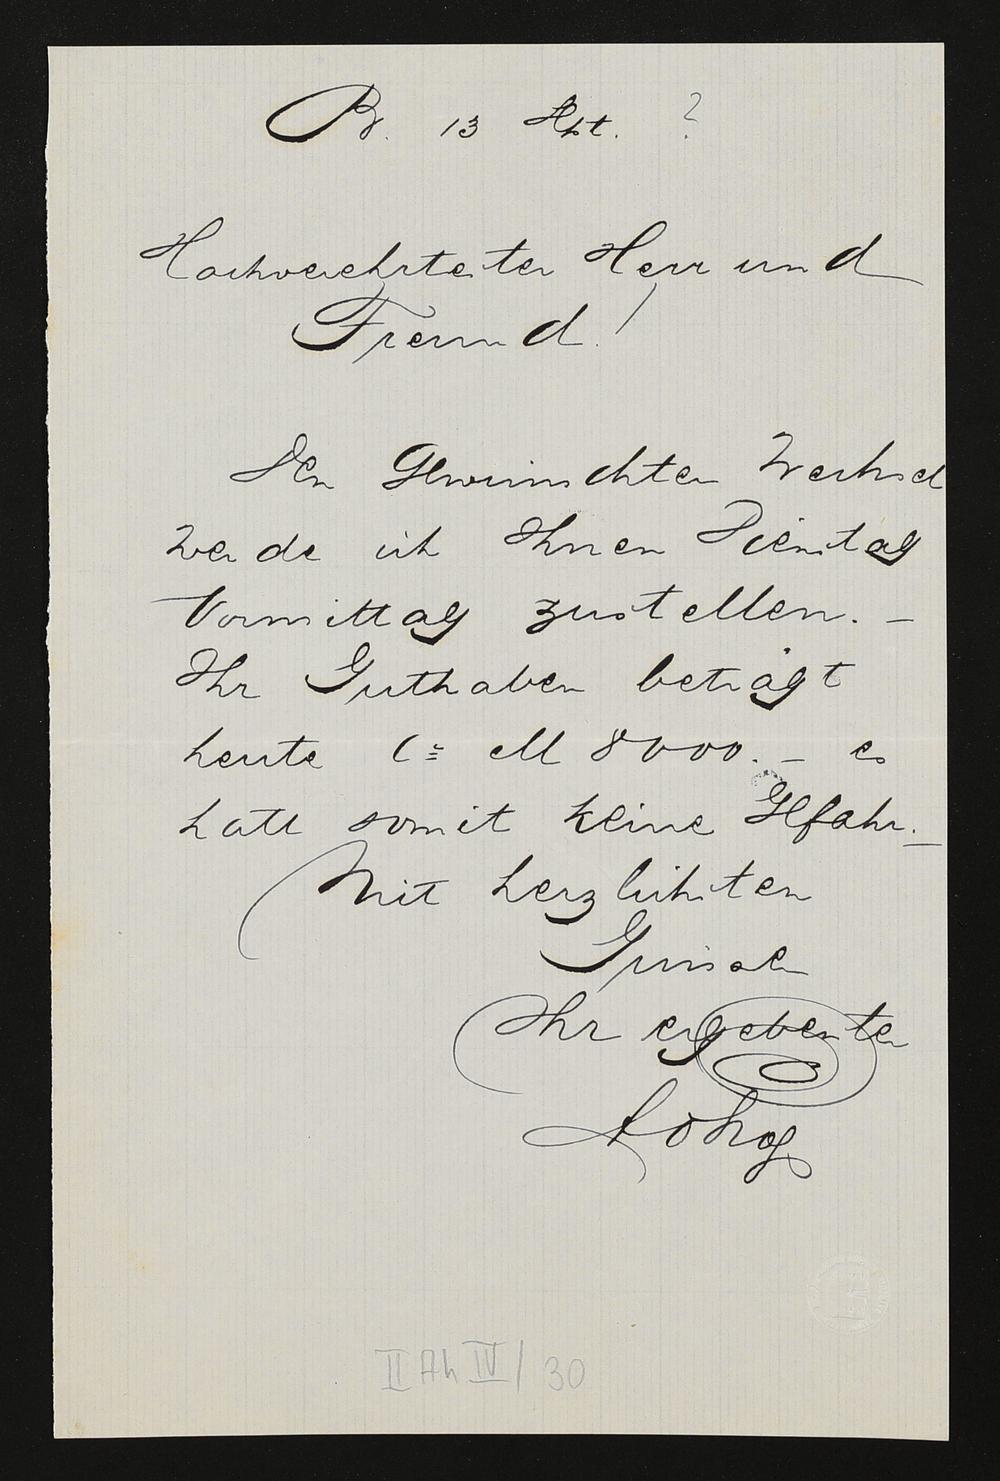 B. 13 Spt. ?
Hochverehrtester Herr und
Freund!
Den Gewünschten Wechsel
werde ich Ihnen Dienstag
Vormittag zustellen. –
Ihr Guthaben beträgt
heute M 8000. – es
hatt somit keine Gefahr. –
Mit herzlichsten
Grüssen
Ihr ergebenster
II Ah IV/30